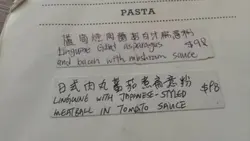 PASTA
蘆筍煙肉白汁蘑菇意粉
Linguine Giant asparagus $98
and bacon with mushroom sauce
日式肉丸蕃茄煮扁意粉
LINGUINE WITH JAPANESE-STYLED $98
MEATBALL IN TOMATO SAUCE